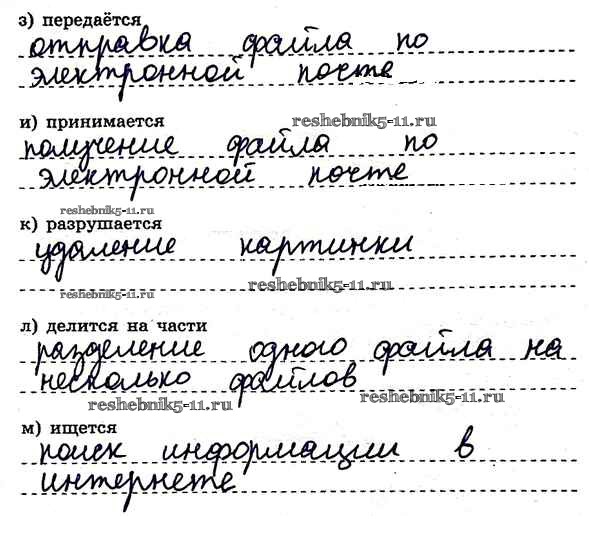 з) передаётся
отправка файла по
электронной почте
и) принимается
reshebnik5-11.ru
получение файла по
электронной почте
reshebnik5-11.ru
к) разрушается
удаление картинки
reshebnik5-11.ru
reshebnik5-11.ru
л) делится на части
разделение одного файла на
несколько файлов
reshebnik5-11.ru
reshebnik5-11.ru
м) ищется
поиск информации в
интернете